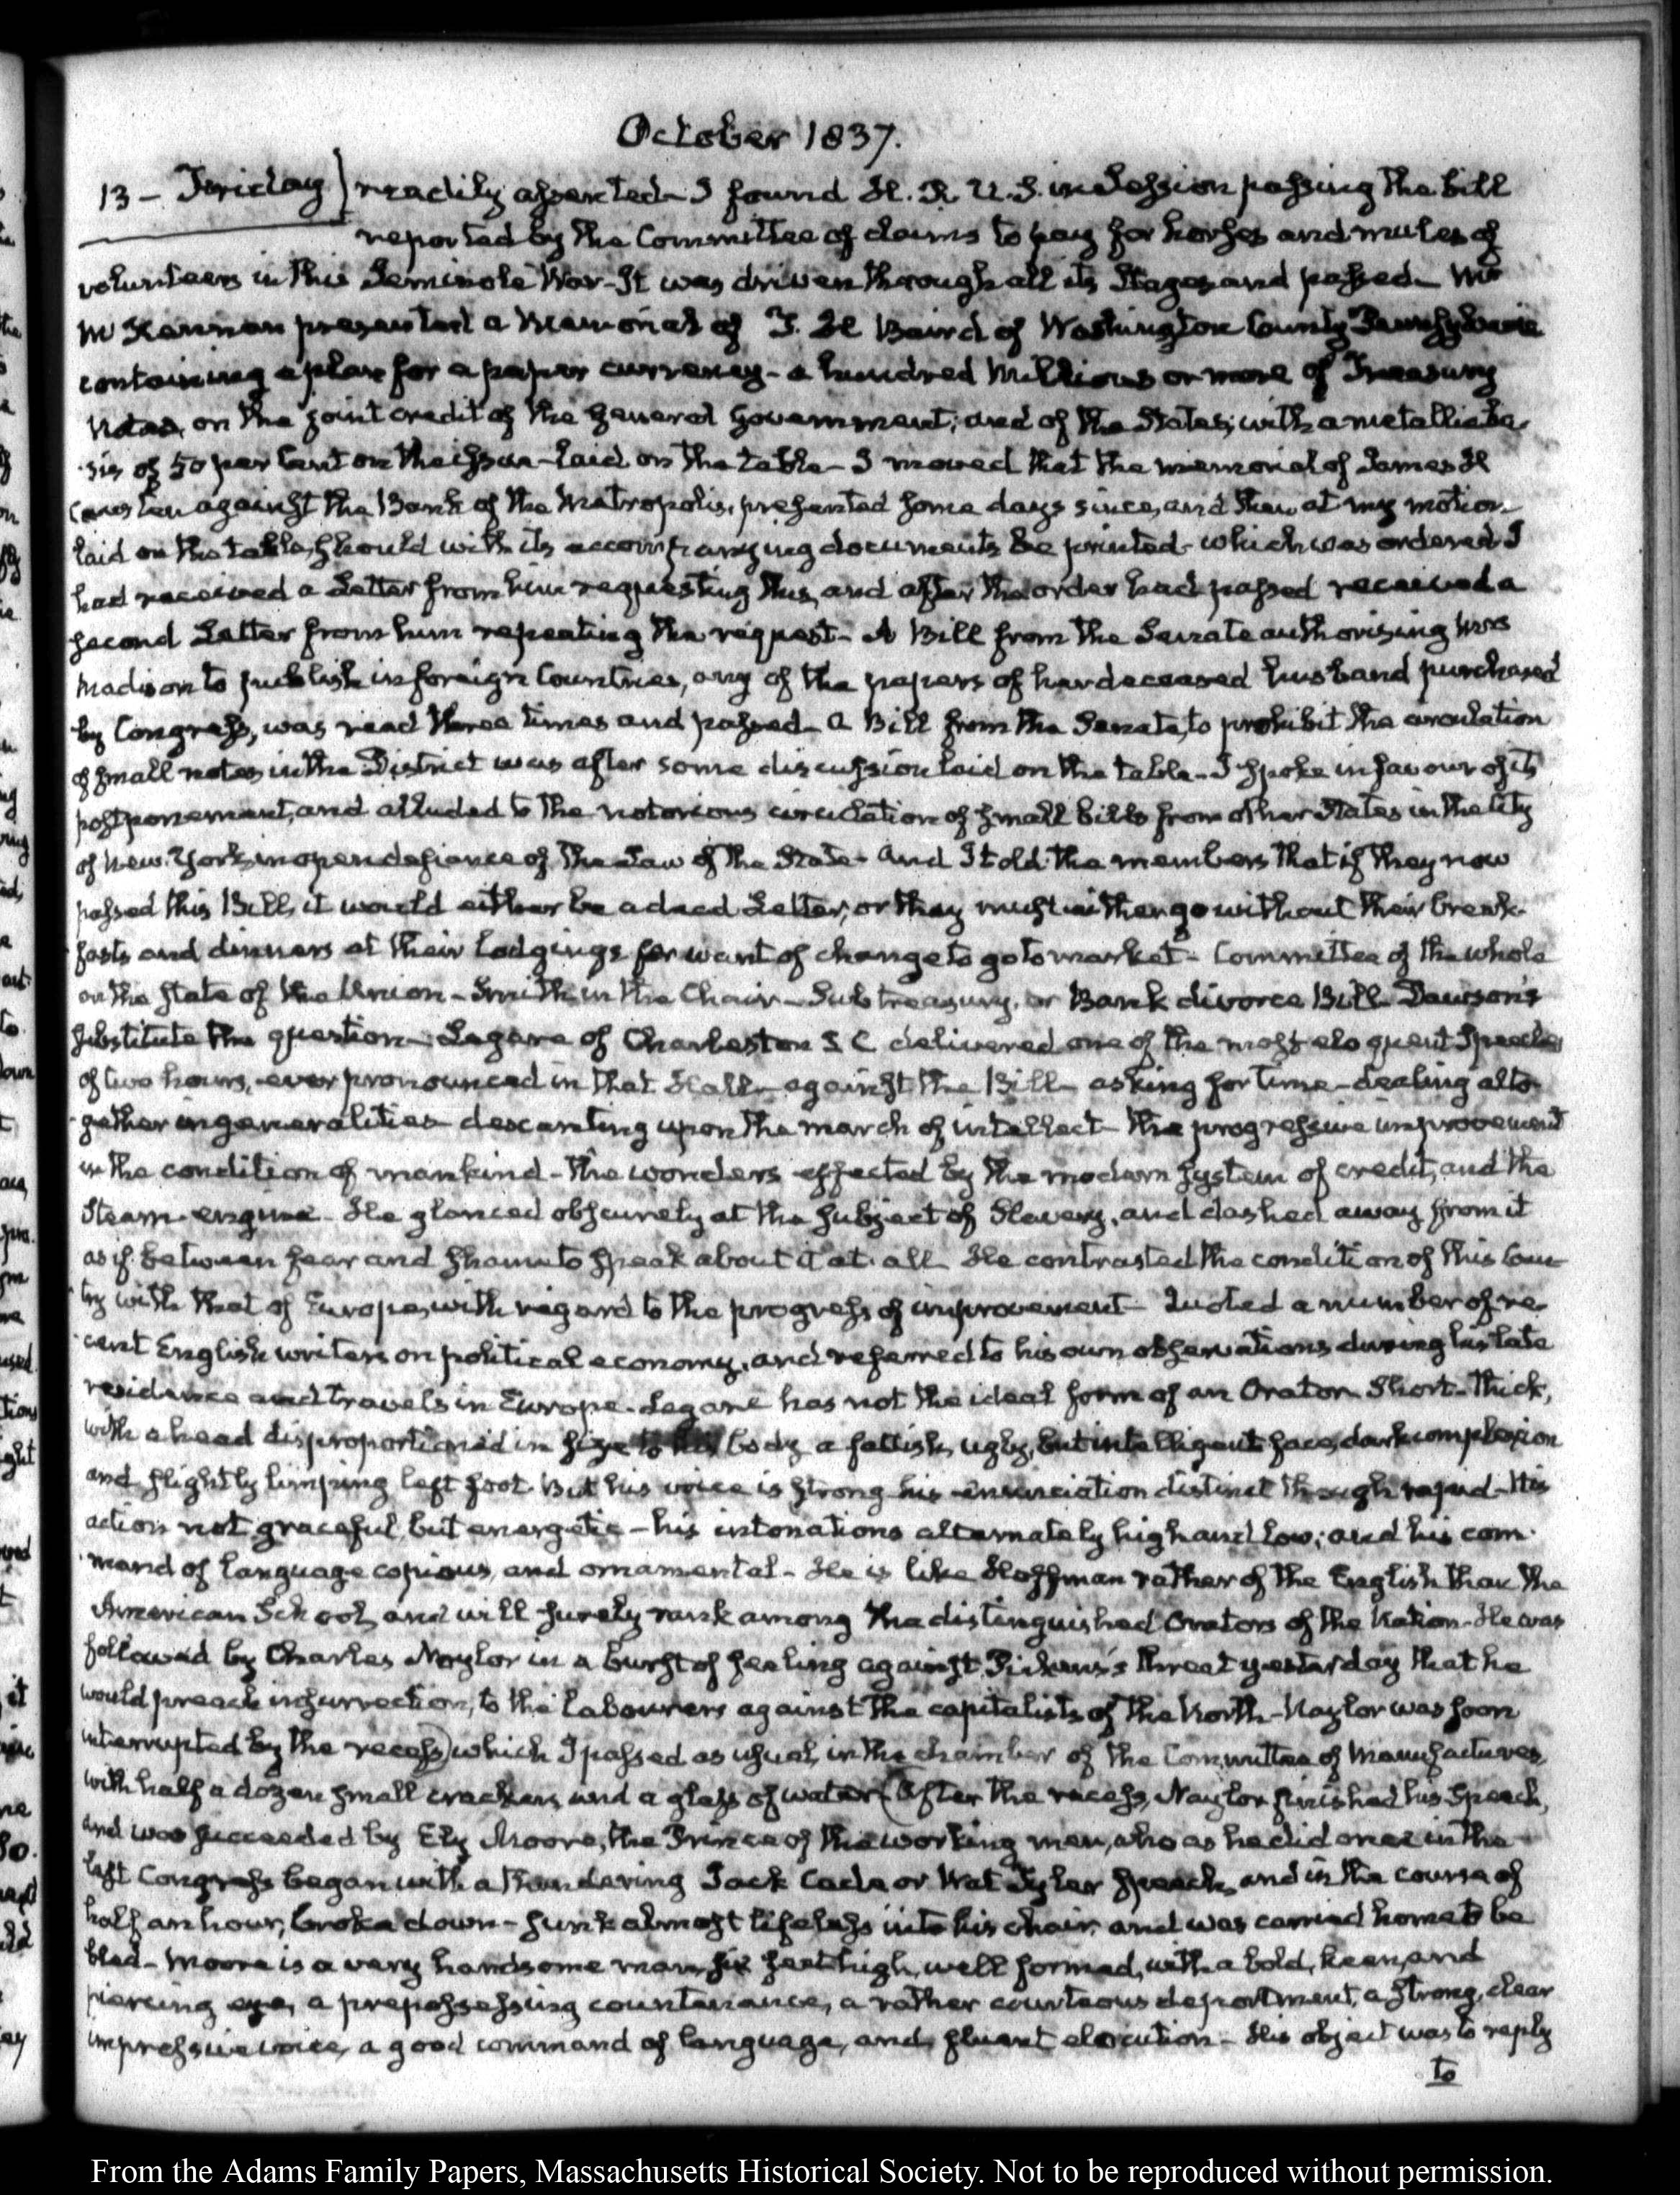 October 1837.
13 - Friday) readily assented - I found H. R. U. S. in Session passing the bill
reported by the Committee of claims to pay for horses and mules of
volunteers in this Seminole War - It was driven through all its Stages and passed - Mr
McKennan presented a Memorial of T. H Baird of Washington County Pennsylvania
containing a plan for a paper currency - a hundred Millions or more of Treasury
Notes, on the joint credit of the general Government, and of the States; with a metallic ba-
sis of 50 per Cent on the issue - laid on the table - I moved that the memorial of James H
against the Bank of the Metropolis, presented some days since, and then at my motion
laid on the table, should with its accompanying documents be printed - which was ordered I
had received a Letter from him requesting this, and after the order had passed received a
second Letter from him repeating the request - A Bill from the Senate authorising Mrs
Madison to publish in foreign Countries, any of the papers of her deceased husband purchased
by Congress, was read three times and passed - a Bill from the Senate, to prohibit the circulation
of small notes in the District was after some discussion laid on the table - I spoke in favour of its
postponement, and alluded to the notorious circulation of small bills from other States in the City
of New-York, in open defiance of the Law of the State - and I told the members that if they now
passed this Bill, it would either be a dead Letter, or they must either go without their break-
fasts and dinners at their lodgings for want of change to go to market - Committee of the whole
on the state of the Union - Smith in the Chair - Sub treasury, or Bank divorce Bill - Dawson's
substitute the question - Legare of Charleston S C delivered one of the most eloquent Speeches
of two hours, ever pronounced in that Hall - against the Bill - asking for time - dealing alto-
gether in generalities - descanting upon the march of intellect - the progressive improvement
in the condition of mankind - the wonders effected by the modern system of credit, and the
Steam-engine - He glanced obscurely at the subject of Slavery, and dashed away from it
as if between fear and shame to speak about it at all - He contrasted the condition of this coun-
try with that of Europe, with regard to the progress of improvement - Quoted a number of re-
cent English writers on political economy, and referred to his own observations during his late
residence and travels in Europe - Legare has not the ideal form of an Orator - Short - thick,
with a head disproportioned in size to his body a fattish, ugly, but intelligent face, dark complexion
and slightly limping left foot. But his voice is strong his enunciation distinct though rapid - His
action not graceful, but energetic - his intonations alternately high and low; and his com-
mand of language copious, and ornamental - He is like Hoffman rather of the English than the
American School, and will surely rank among the distinguished Orators of the Nation - He was
followed by Charles Naylor in a burst of feeling against Pickens's threat yesterday that he
would preach insurrection, to the labourers against the capitalists of the North - Naylor was soon
interrupted by the recess) which I passed as usual, in the chamber of the Committee of Manufactures,
with half a dozen small crackers, and a glass of water (After the recess, Naylor finished his Speech,
and was succeeded by Ely Moore, the Prince of the working men, who as he did once in the
last Congress began with a thundering Jack Cade or Wat Tyler speech, and in the course of
half an hour, broke down - sunk almost lifeless into his chair, and was carried home to be
bled - Moore is a very handsome man six feet high, well formed, with a bold, keen, and
piercing eye, a prepossessing countenance, a rather courteous deportment, a strong, clear
impressive voice, a good command of language, and fluent elocution - His object was to reply
to
From the Adams Family Papers, Massachusetts Historical Society. Not to be reproduced without permission.